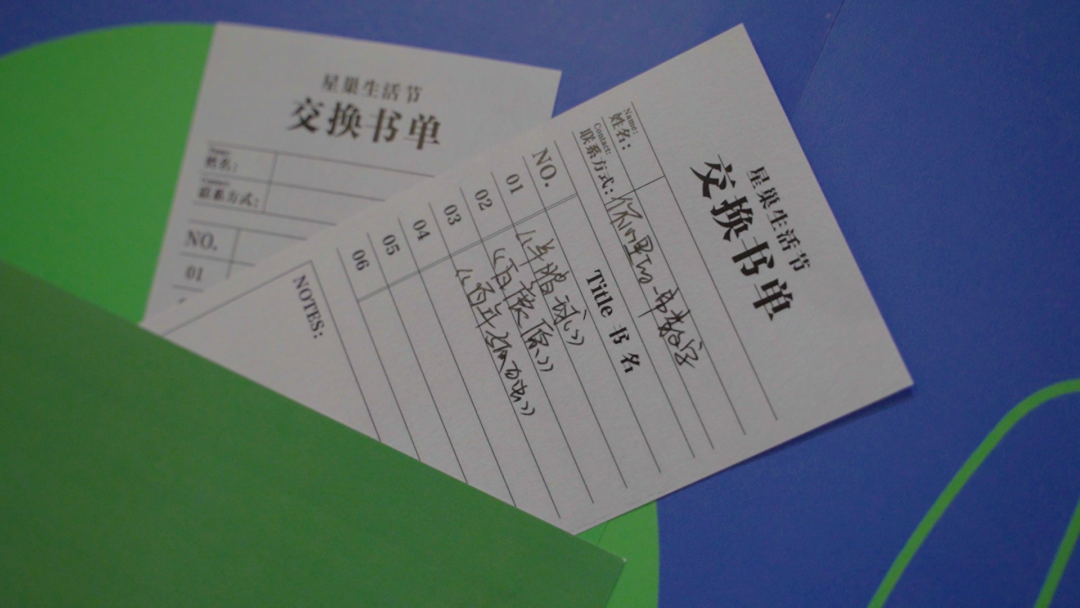 星巢生活节
交换书单
Name:
姓名：
Contact:
联系方式：
NO.
01
星巢生活节
交换书单
Name:
姓名：
Contact:
联系方式：你的
NO. Title 书名
01
02 《白鹿原》
03 《百年孤独》
04
05
06
NOTES: